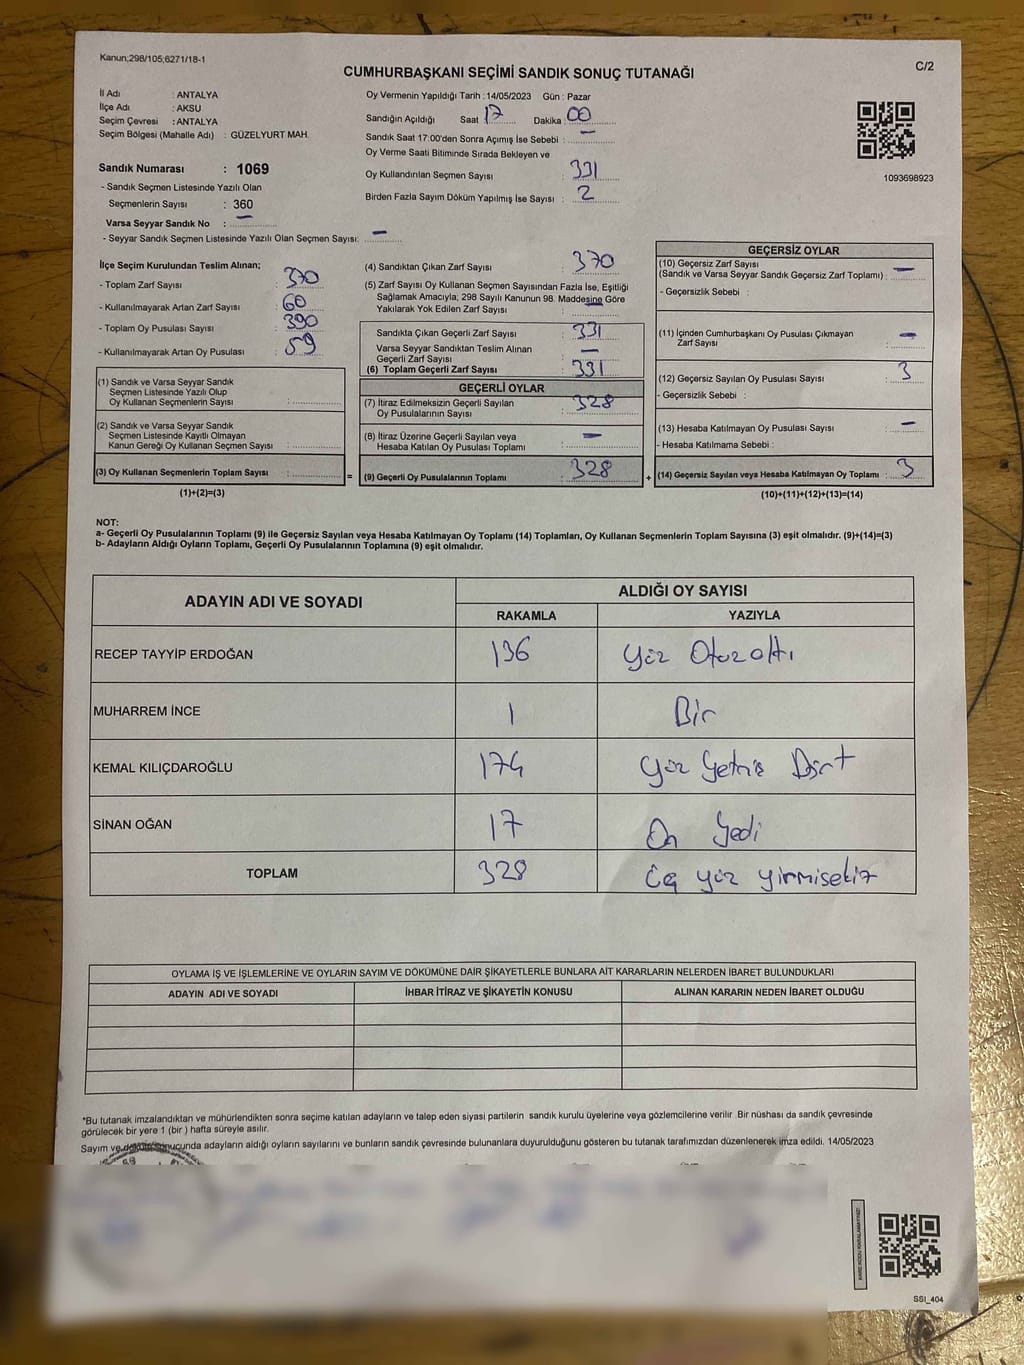 Kanun;298/105;6271/18-1
C/2
CUMHURBAŞKANI SEÇİMİ SANDIK SONUÇ TUTANAĞI
İl Adı : ANTALYA
İlçe Adı : AKSU
Seçim Çevresi : ANTALYA
Seçim Bölgesi (Mahalle Adı) : GÜZELYURT MAH.
Sandık Numarası : 1069
- Sandık Seçmen Listesinde Yazılı Olan
Seçmenlerin Sayısı : 360
Varsa Seyyar Sandık No : —
- Seyyar Sandık Seçmen Listesinde Yazılı Olan Seçmen Sayısı: —
Oy Vermenin Yapıldığı Tarih : 14/05/2023 Gün : Pazar
Sandığın Açıldığı Saat 17 Dakika 00
Sandık Saat 17:00'den Sonra Açımış İse Sebebi : —
Oy Verme Saati Bitiminde Sırada Bekleyen ve
Oy Kullandırılan Seçmen Sayısı : 331
Birden Fazla Sayım Döküm Yapılmış İse Sayısı : 2
1093698923
İlçe Seçim Kurulundan Teslim Alınan;
- Toplam Zarf Sayısı : 370
- Kullanılmayarak Artan Zarf Sayısı : 60
- Toplam Oy Pusulası Sayısı : 390
- Kullanılmayarak Artan Oy Pusulası : 59
(1) Sandık ve Varsa Seyyar Sandık
Seçmen Listesinde Yazılı Olup
Oy Kullanan Seçmenlerin Sayısı :
(2) Sandık ve Varsa Seyyar Sandık
Seçmen Listesinde Kayıtlı Olmayan
Kanun Gereği Oy Kullanan Seçmen Sayısı :
(3) Oy Kullanan Seçmenlerin Toplam Sayısı :
(1)+(2)=(3)
(4) Sandıktan Çıkan Zarf Sayısı : 370
(5) Zarf Sayısı Oy Kullanan Seçmen Sayısından Fazla İse, Eşitliği
Sağlamak Amacıyla; 298 Sayılı Kanunun 98. Maddesine Göre
Yakılarak Yok Edilen Zarf Sayısı : —
Sandıkta Çıkan Geçerli Zarf Sayısı : 331
Varsa Seyyar Sandıktan Teslim Alınan
Geçerli Zarf Sayısı : —
(6) Toplam Geçerli Zarf Sayısı : 331
GEÇERLİ OYLAR
(7) İtiraz Edilmeksizin Geçerli Sayılan
Oy Pusulalarının Sayısı : 328
(8) İtiraz Üzerine Geçerli Sayılan veya
Hesaba Katılan Oy Pusulası Toplamı : —
= (9) Geçerli Oy Pusulalarının Toplamı : 328
GEÇERSİZ OYLAR
(10) Geçersiz Zarf Sayısı
(Sandık ve Varsa Seyyar Sandık Geçersiz Zarf Toplamı) : —
- Geçersizlik Sebebi :
(11) İçinden Cumhurbaşkanı Oy Pusulası Çıkmayan
Zarf Sayısı : —
(12) Geçersiz Sayılan Oy Pusulası Sayısı : 3
- Geçersizlik Sebebi :
(13) Hesaba Katılmayan Oy Pusulası Sayısı : —
- Hesaba Katılmama Sebebi :
+ (14) Geçersiz Sayılan veya Hesaba Katılmayan Oy Toplamı : 3
(10)+(11)+(12)+(13)=(14)
NOT:
a- Geçerli Oy Pusulalarının Toplamı (9) ile Geçersiz Sayılan veya Hesaba Katılmayan Oy Toplamı (14) Toplamları, Oy Kullanan Seçmenlerin Toplam Sayısına (3) eşit olmalıdır. (9)+(14)=(3)
b- Adayların Aldığı Oyların Toplamı, Geçerli Oy Pusulalarının Toplamına (9) eşit olmalıdır.
ADAYIN ADI VE SOYADI
ALDIĞI OY SAYISI
RAKAMLA YAZIYLA
RECEP TAYYİP ERDOĞAN 136 Yüz Otuz altı
MUHARREM İNCE 1 Bir
KEMAL KILIÇDAROĞLU 174 Yüz Yetmiş Dört
SİNAN OĞAN 17 On Yedi
TOPLAM 328 Üç yüz yirmisekiz
OYLAMA İŞ VE İŞLEMLERİNE VE OYLARIN SAYIM VE DÖKÜMÜNE DAİR ŞİKAYETLERLE BUNLARA AİT KARARLARIN NELERDEN İBARET BULUNDUKLARI
ADAYIN ADI VE SOYADI İHBAR İTİRAZ VE ŞİKAYETİN KONUSU ALINAN KARARIN NEDEN İBARET OLDUĞU
*Bu tutanak imzalandıktan ve mühürlendikten sonra seçime katılan adayların ve talep eden siyasi partilerin sandık kurulu üyelerine veya gözlemcilerine verilir .Bir nüshası da sandık çevresinde
görülecek bir yere 1 (bir ) hafta süreyle asılır.
Sayım ve döküm sonucunda adayların aldığı oyların sayılarını ve bunların sandık çevresinde bulunanlara duyurulduğunu gösteren bu tutanak tarafımızdan düzenlenerek imza edildi. 14/05/2023
KARE KODU KARALAMAYINIZ!
SSI_404